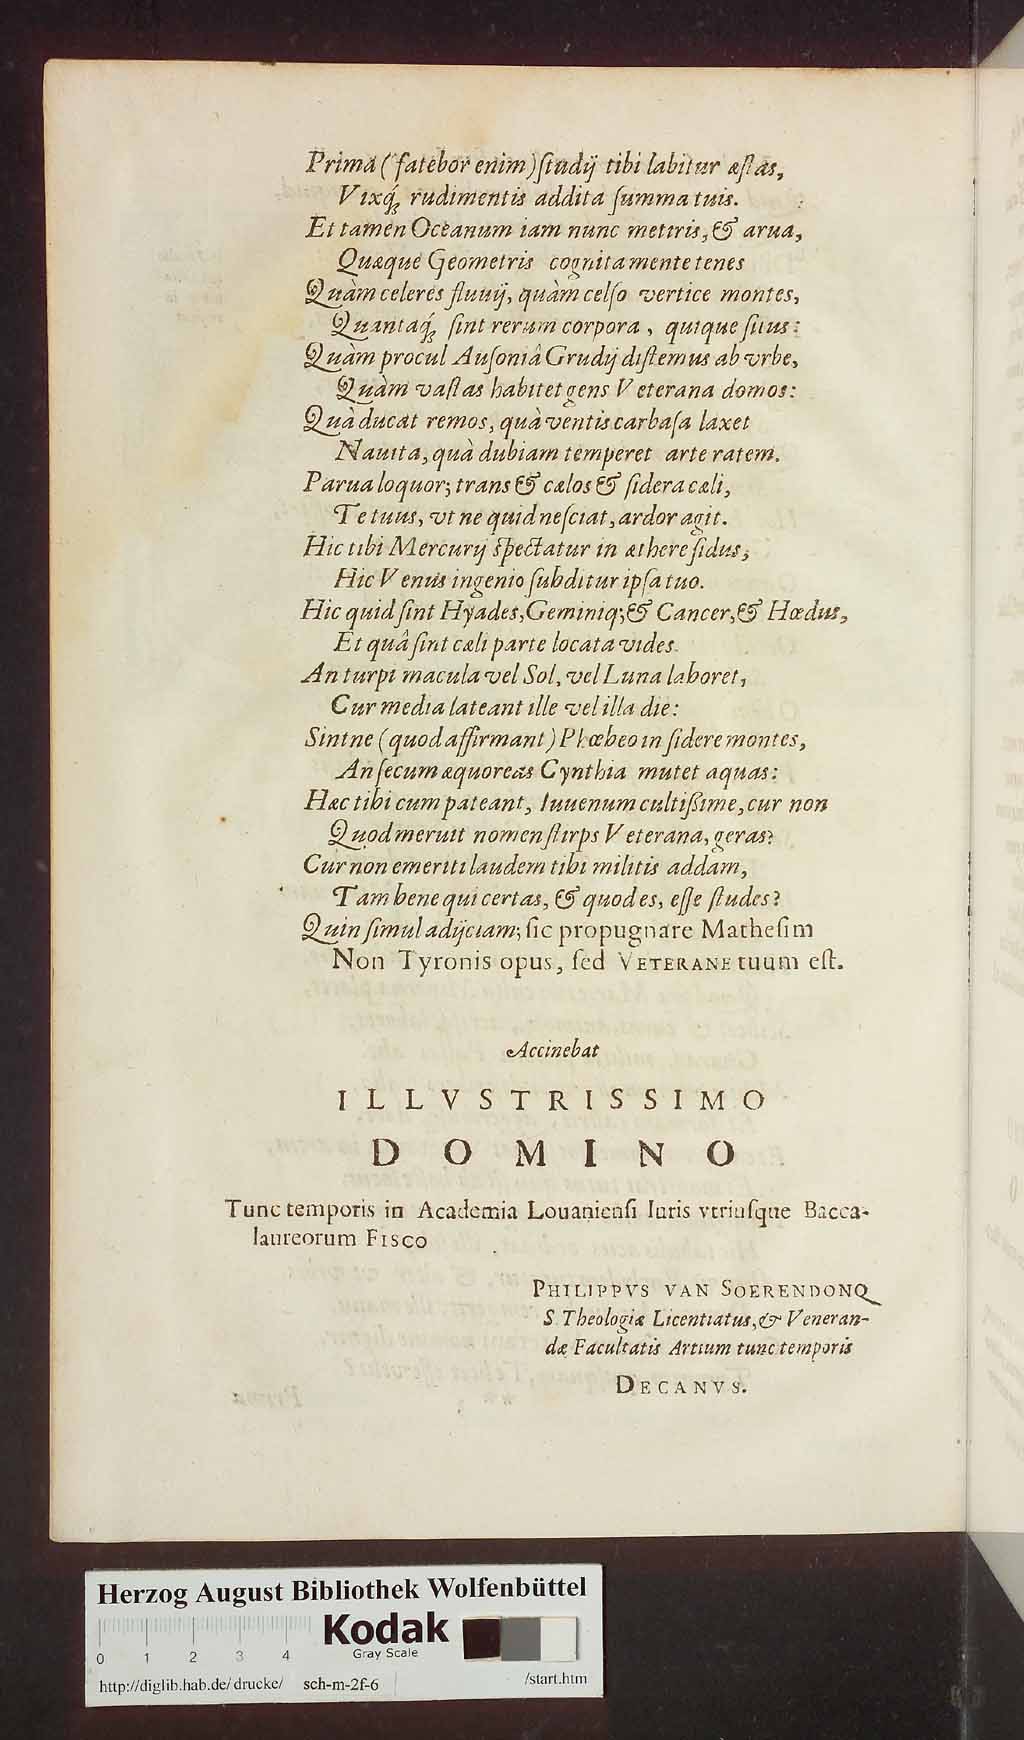 Prima (fatebor enim) ſtudij tibi labitur æſtas,
Vixq́; rudimentis addita ſumma tuis.
Et tamen Oceanum iam nunc metiris, & arua,
Quæque Geometris cognita mente tenes
Quàm celeres fluuij, quàm celſo vertice montes,
Quantaq́; ſint rerum corpora, quique ſitus:
Quàm procul Auſoniâ Grudij diſtemus ab vrbe,
Quàm vaſtas habitet gens Veterana domos:
Quà ducat remos, quà ventis carbaſa laxet
Nauita, quà dubiam temperet arte ratem.
Parua loquor; trans & cælos & ſidera cæli,
Te tuus, vt ne quid neſciat, ardor agit.
Hic tibi Mercurij ſpectatur in æthere ſidus,
Hic Venus ingenio ſubditur ipſa tuo.
Hic quid ſint Hyades, Geminiq; & Cancer, & Hœdus,
Et quâ ſint cæli parte locata vides.
An turpi macula vel Sol, vel Luna laboret,
Cur media lateant ille vel illa die:
Sintne (quod affirmant) Phœbeo in ſidere montes,
An ſecum æquoreas Cynthia mutet aquas:
Hæc tibi cum pateant, Iuuenum cultiſsime, cur non
Quod meruit nomen ſtirps Veterana, geras?
Cur non emeriti laudem tibi militis addam,
Tam bene qui certas, & quod es, eſſe ſtudes?
Quin ſimul adijciam; ſic propugnare Matheſim
Non Tyronis opus, ſed VETERANE tuum eſt.
Accinebat
ILLVSTRISSIMO
DOMINO
Tunc temporis in Academia Louanienſi Iuris vtriuſque Bacca-
laureorum FISCO
PHILIPPVS VAN SOERENDONQ
S. Theologiæ Licentiatus, & Veneran-
dæ Facultatis Artium tunc temporis
DECANVS.
Herzog August Bibliothek Wolfenbüttel
Kodak
Gray Scale
0 1 2 3 4
http://diglib.hab.de/drucke/ sch-m-2f-6 /start.htm